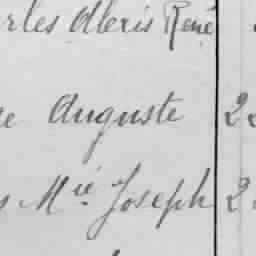 rles Alexis René
e Auguste 22
s Mie Joseph 2